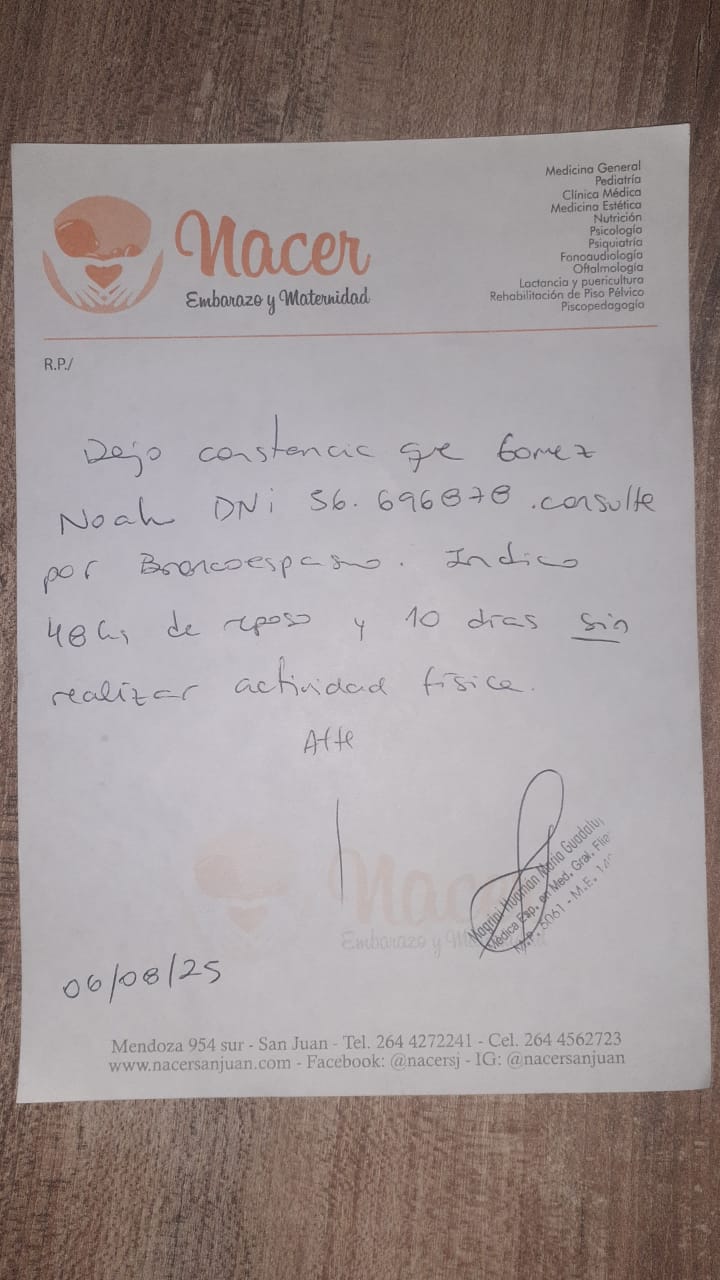 Nacer
Embarazo y Maternidad
Medicina General
Pediatría
Clínica Médica
Medicina Estética
Nutrición
Psicología
Psiquiatría
Fonoaudiología
Oftalmologia
Lactancia y puericultura
Rehabilitación de Piso Pélvico
Piscopedagogía
R.P./
Dejo constancia que Gomez
Noah DNi 56.696878 .consulte
por Broncoespasmo. Indico
48hs de reposo y 10 días sin
realizar actividad física.
Atte
Nacer
Embarazo y
Huaman María
Médica Esp. en Med. Gral.
M.P. 5061 - M.E.
06/08/25
Mendoza 954 sur - San Juan - Tel. 264 4272241 - Cel. 264 4562723
www.nacersanjuan.com - Facebook: @nacersj - IG: @nacersanjuan